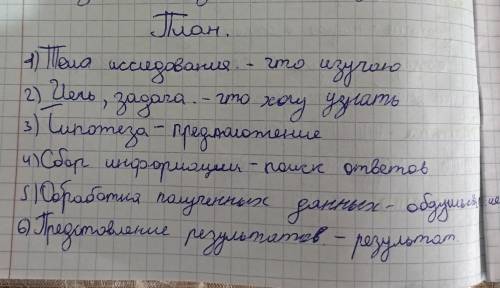 План.
1) Тема исследования - что изучаю
2) Цель, задача - что хочу узнать
3) Гипотеза - предположение
4) Сбор информации - поиск ответов
5) Обработка полученных данных -
6) Представление результатов - результат